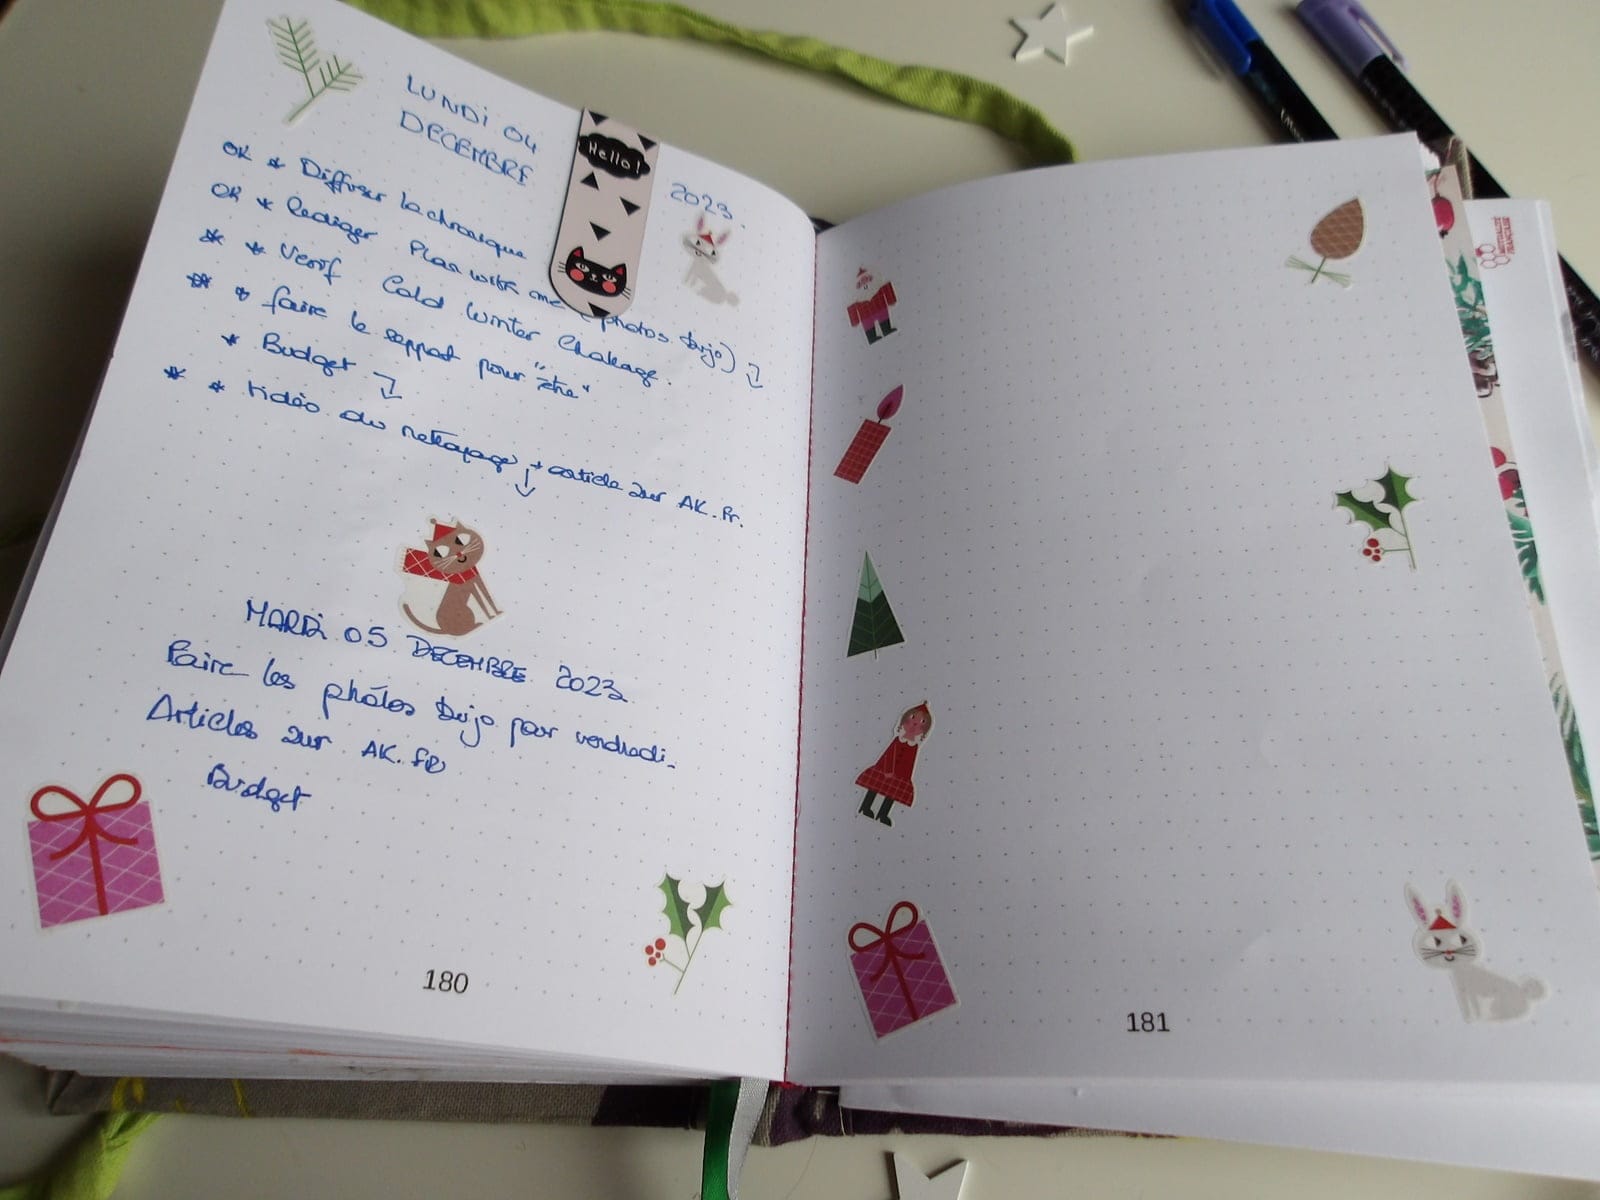 LUNDI 04
DECEMBRE
2023.
Hello!
OK * Diffuser la chronique
OK * Rediger Plan with me (photos bujo)
* * Verif Cold Winter Challenge.
* * faire le rappat pour "être"
* Budget
* * Vidéo du nettoyage + article sur AK.fr.
MARDI 05 DECEMBRE 2023
Faire les photos bujo pour vendredi.
Articles sur AK.fr
Budget
180
181